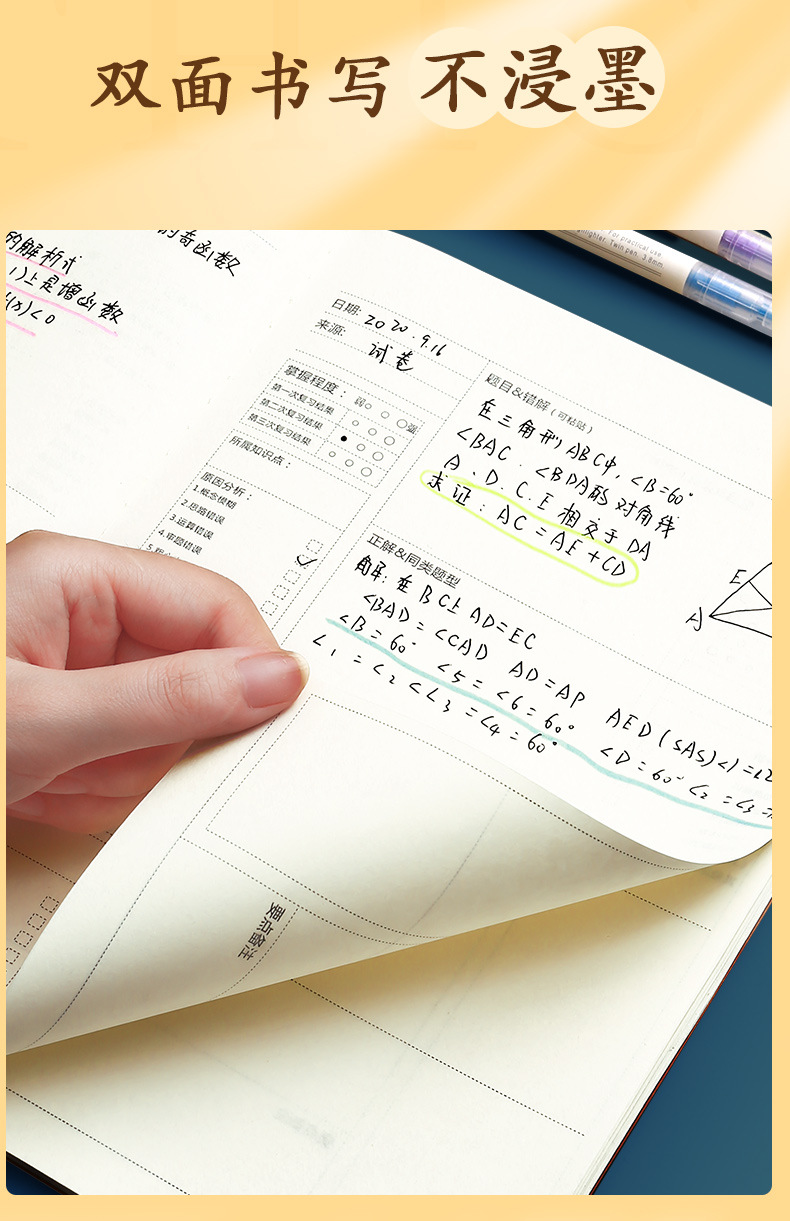 双面书写 不浸墨
的奇函数
的解析式
1)上是增函数
f(x)<0
For practical use.
Twin pen 3.8mm
日期: 2020.9.16
来源: 试卷
掌握程度: 弱 强
第一次复习结果
第二次复习结果
第三次复习结果
所属知识点:
原因分析:
1.概念模糊
2.思路错误
3.运算错误
4.审题错误
题目&错解(可粘贴)
在三角形ABC中,∠B=60°
∠BAC、∠BDA的对角线
A、D.C.E相交于DA
求证:AC=AE+CD
E
A
正解&同类题型
解:在BC上AD=EC
∠BAD=∠CAD AD=AP AED(SAS)∠1=∠2
∠B=60° ∠5=∠6=60° ∠D=60° ∠2=∠3=
∠1=∠2<∠3=∠4=60°
要点备注